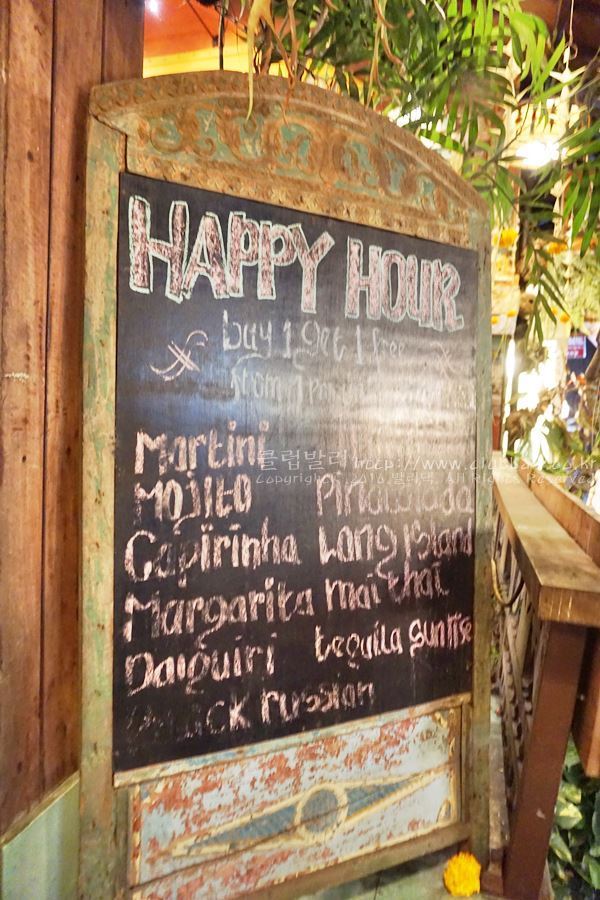 HAPPY HOUR
buy 1 get 1 free
from 1 Pm
Martini
Mojito Pinacolada
Capirinha Long Island
Margarita mai thai
Daiguiri tequila sunrise
Black russian
클럽발리 http://www.clubbali.co.kr
Copyright 2016 발리넷. All Rights Reserved